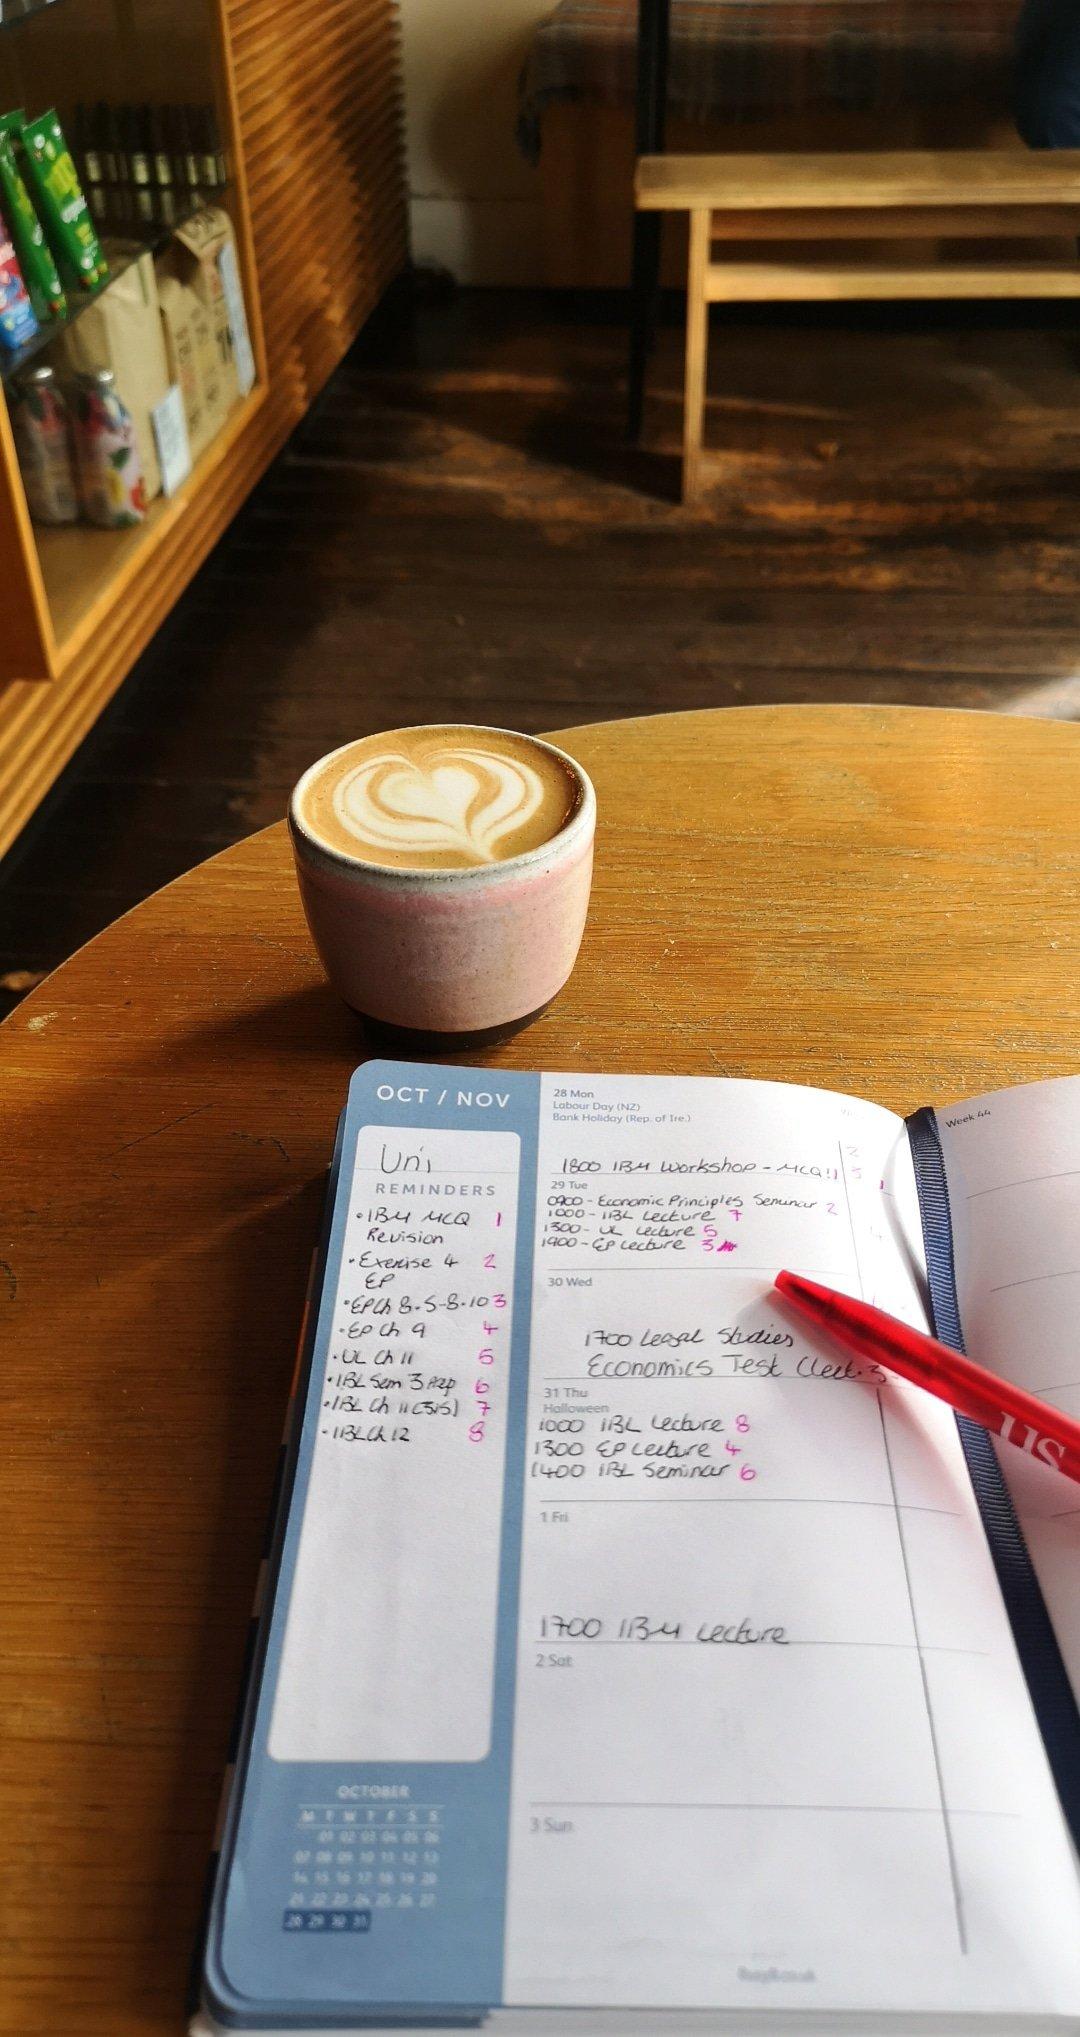 OCT / NOV
Uni
REMINDERS
• IBM MCQ 1
Revision
• Exercise 4 2
EP
• EP Ch 8.5-8.10 3
• EP Ch 9 4
• UL Ch 11 5
• IBL Sem 3 Prep 6
• IBL Ch 11 (SIS) 7
• IBL Ch 12 8
OCTOBER
M T W T F S S
01 02 03 04 05 06
07 08 09 10 11 12 13
14 15 16 17 18 19 20
21 22 23 24 25 26 27
28 29 30 31
28 Mon
Labour Day (NZ)
Bank Holiday (Rep. of Ire.)
1800 IBM Workshop - MCQ! 1
29 Tue
0900 - Economic Principles Seminar 2
1000 - IBL Lecture 7
1300 - UL Lecture 5
1900 - EP Lecture 3
30 Wed
1700 Legal Studies
Economics Test
31 Thu
Halloween
1000 IBL Lecture 8
1300 EP Lecture 4
1400 IBL Seminar 6
1 Fri
1700 IBM Lecture
2 Sat
3 Sun
Week 44
us